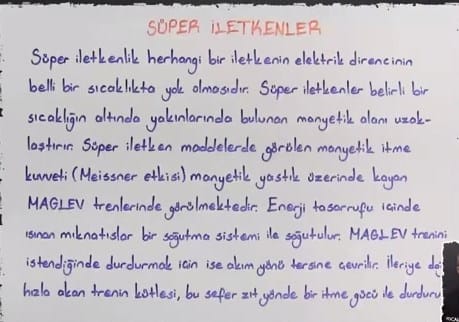 SÜPER İLETKENLER
Süper iletkenlik herhangi bir iletkenin elektrik direncinin
belli bir sıcaklıkta yok olmasıdır. Süper iletkenler belirli bir
sıcaklığın altında yakınlarında bulunan manyetik alanı uzak-
laştırır. Süper iletken maddelerde görülen manyetik itme
kuvveti (Meissner etkisi) manyetik yastık üzerinde kayan
MAGLEV trenlerinde görülmektedir. Enerji tasarrufu içinde
ısınan mıknatıslar bir soğutma sistemi ile soğutulur. MAGLEV trenini
istendiğinde durdurmak için ise akım yönü tersine çevrilir. İleriye
hızla akan trenin kütlesi, bu sefer zıt yönde bir itme gücü ile